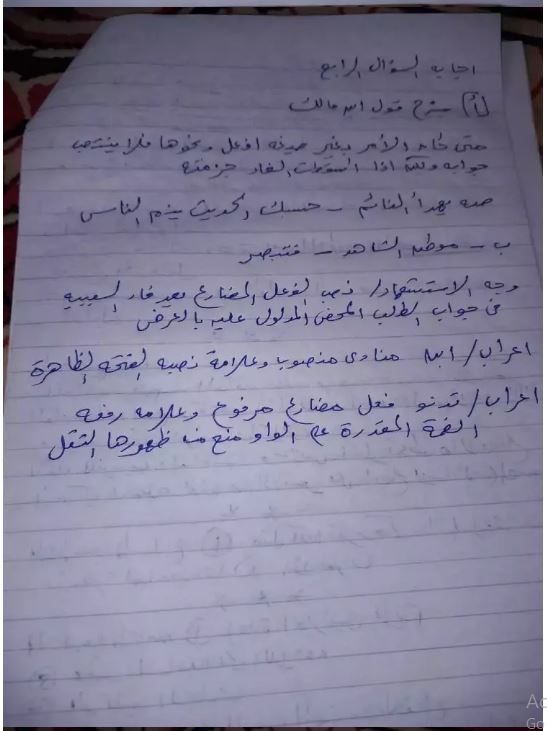 اجابه السؤال الرابع
(أ) شرح قول ابن مالك
متى كان الأمر بغير صيغه افعل ونحوها فلا ينتصب
جوابه ولكنه اذا اسقطت الفاء جزمته
صه يهدأ النائم - حسبك الحديث ينم الناس
ب - موطن الشاهد - فتبصر
وجه الاستشهاد / نصب الفعل المضارع بعد فاء السببيه
في جواب الطلب المحض المدلول عليه بالعرض
اعراب / ابن منادى منصوبا وعلامة نصبه الفتحه الظاهرة
اعراب / تدنو فعل مضارع مرفوع وعلامه رفعه
الضمة المقدرة على الواو منع من ظهورها الثقل
Ac
Go